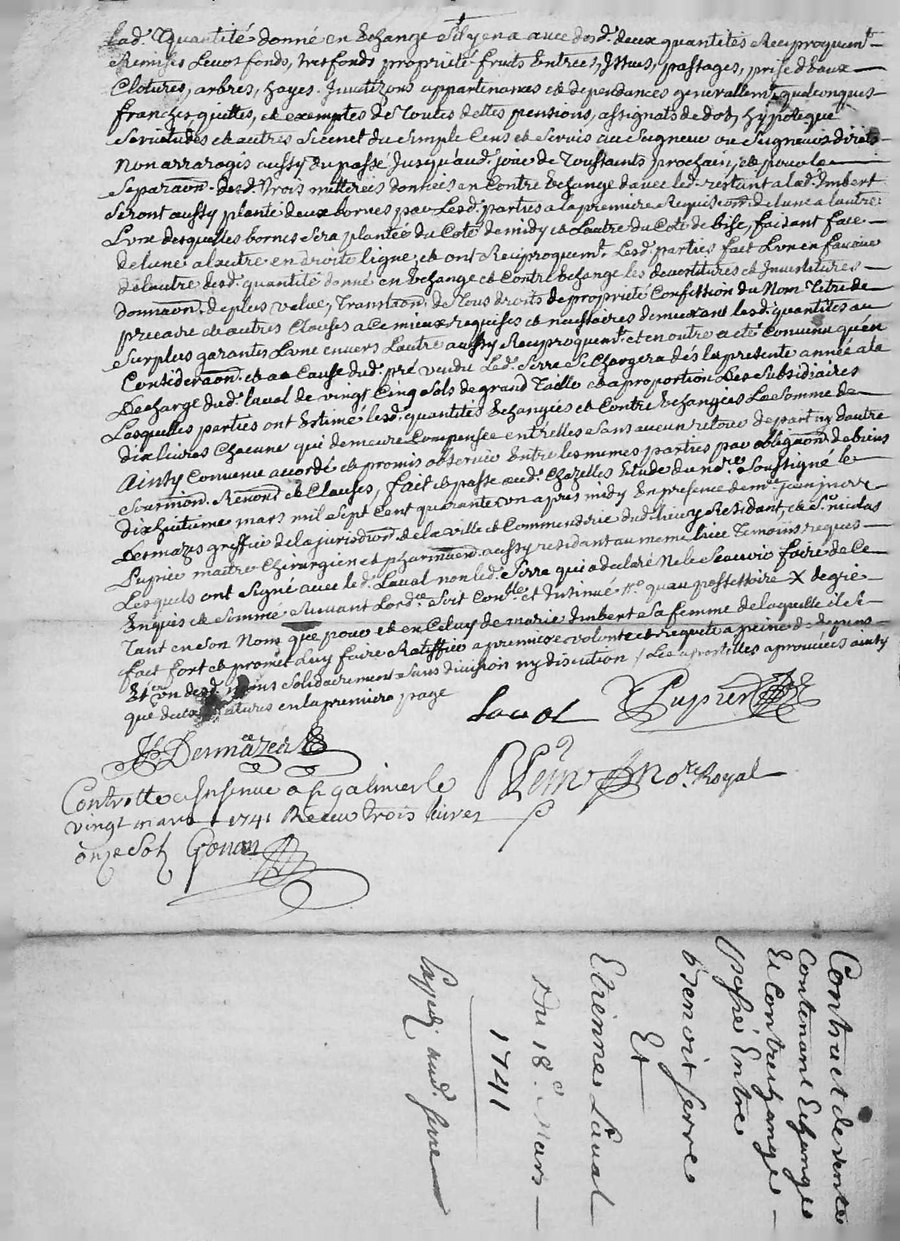 lad. quantité donné en Echange sil y en a avec lesd. deux quantités Reciproquemt.
Remises Leurs fonds, tresfonds propriété fruits Entrées, Issues, passages, prise deaux
Clotures, arbres, hayes. appartenances et dependances generallemt. quelconques
franches, quittes, et exemptes de Toutes dettes pensions, assignats de dot, hypoteque
Servitudes et autres Sicenet du Simple Cens et Servis au Seigneur ou Seigneurs directs
Non arraragés aussy du passé Jusqu'aud. jour de Toussants prochain, et pour la
Separaon. desd. Trois metterées données en Contre Echange davec led. restant a lad. Imbert
Seront aussy planté deux bornes par Lesd. parties a la premiere Requision. de lune a lautre
Lune desquelles bornes Sera plantée du Coté de midy et Lautre du Coté de bise, faisant face
de lune a lautre en droite ligne, et ont Reciproquemt. Lesd. parties fait Lune en faveur
de lautre desd. quantité donné en Echange et Contre Echange les devestitures et Investitures
donnaon. de plus value, Translaon. de Tous droits de proprieté Confession du Nom Titre de
precaire et autres Clauses a ce mieux requises et necessaires demeurant lesd. quantités au
Surplus garanties Lune envers Lautre aussy Reciproquemt. et en outre a eté Convenu qu'en
Consideraon. et a Cause dud. pré vendu Led. Serre Se Chargera dès la presente année a la
Decharge dud. laval de vingt Cinq Sols de grand Taille et a proportion Des Subsidiaires
Lesquelles parties ont Estimé lesd. quantités Echangées et Contre Echangées La Somme de
dix livres Chacune qui demeure Compensée entrelles Sans aucun retour de part ny dautre
Ainsy Convenu accordé et promis observer Entre les mêmes parties par obligaon. de biens
Soumion. Renonon. et Clauses, fait et passé aud. Chazelles Etude du nore. Soussigné le
dixhuitieme mars mil Sept Cent quarante Un apres midy En presence de me. jean
Desmazes greffier de la jurisdion. de la ville et Commenderie dud. lieu y Residant, et Sr. nicolas
Pupier maitre Chirurgien et aussy residant au meme lieu Temoins requis
Lesquels ont Signé avec led. Laval non led. Serre qui a declaré Ne le Scavoir faire de Ce
Enquis et Sommé Suivant Lordce. Soit Conllé. et Insinué
Tant en Son Nom que pour et en Celuy de marie Imbert Sa femme de laquelle il se
fait fort et promet Luy faire Ratiffier a premiere volonté et requete a peine de depens
Solidairement Sans division ny discution / Les apostilles aprouvées ainsy
que en la premiere page
Laval Pupier
Desmazes
Royal
Controllé et Insinué a St galmier le
vingt mars 1741 Receu trois livres
onze Sols Gonon
Contract de vente
Contenant Echange
Et Contreechange
passé Entre
benoit Serre
Et
Etienne Laval
Du 18e. Mars
1741
Expedié aud. Serre